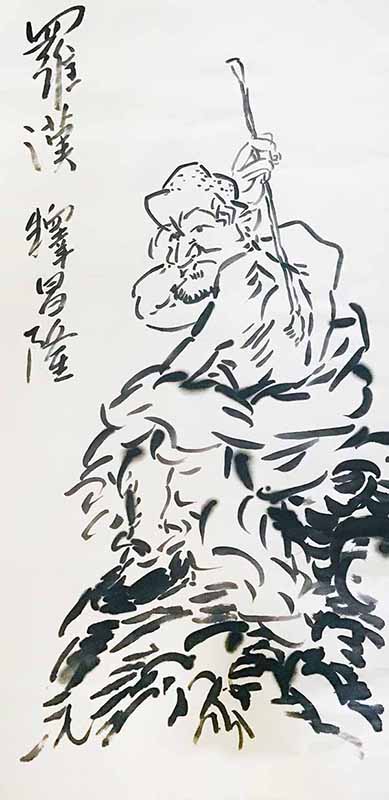 羅漢 釋昌隆